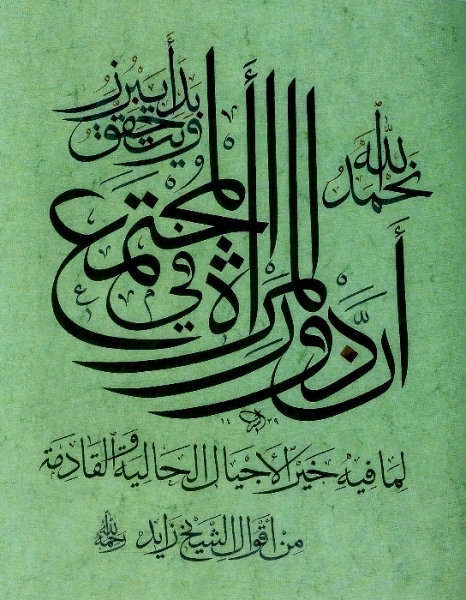 بحمد الله
أن دور المرأة في المجتمع
بدأ يبرز
ويتحقق
لما فيه خير الأجيال الحالية والقادمة
١٤٣٩
من أقوال الشيخ زايد رحمه الله